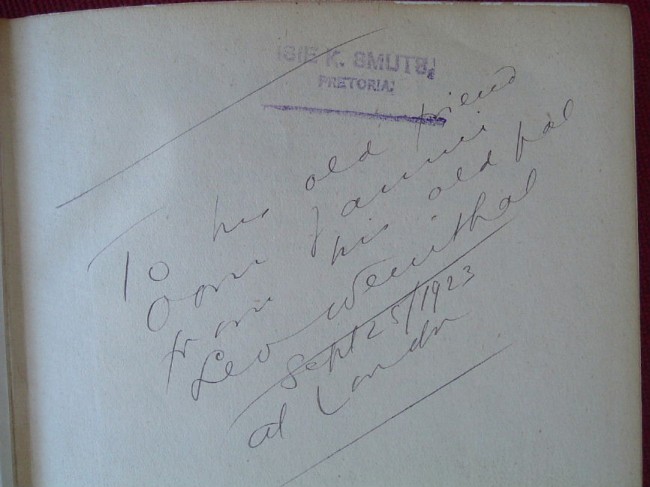 ISIE K. SMUTS,
PRETORIA.
To his old friend
Oom Jannie
from his old pal
Leo Weinthal
Sept 25/1923
at London